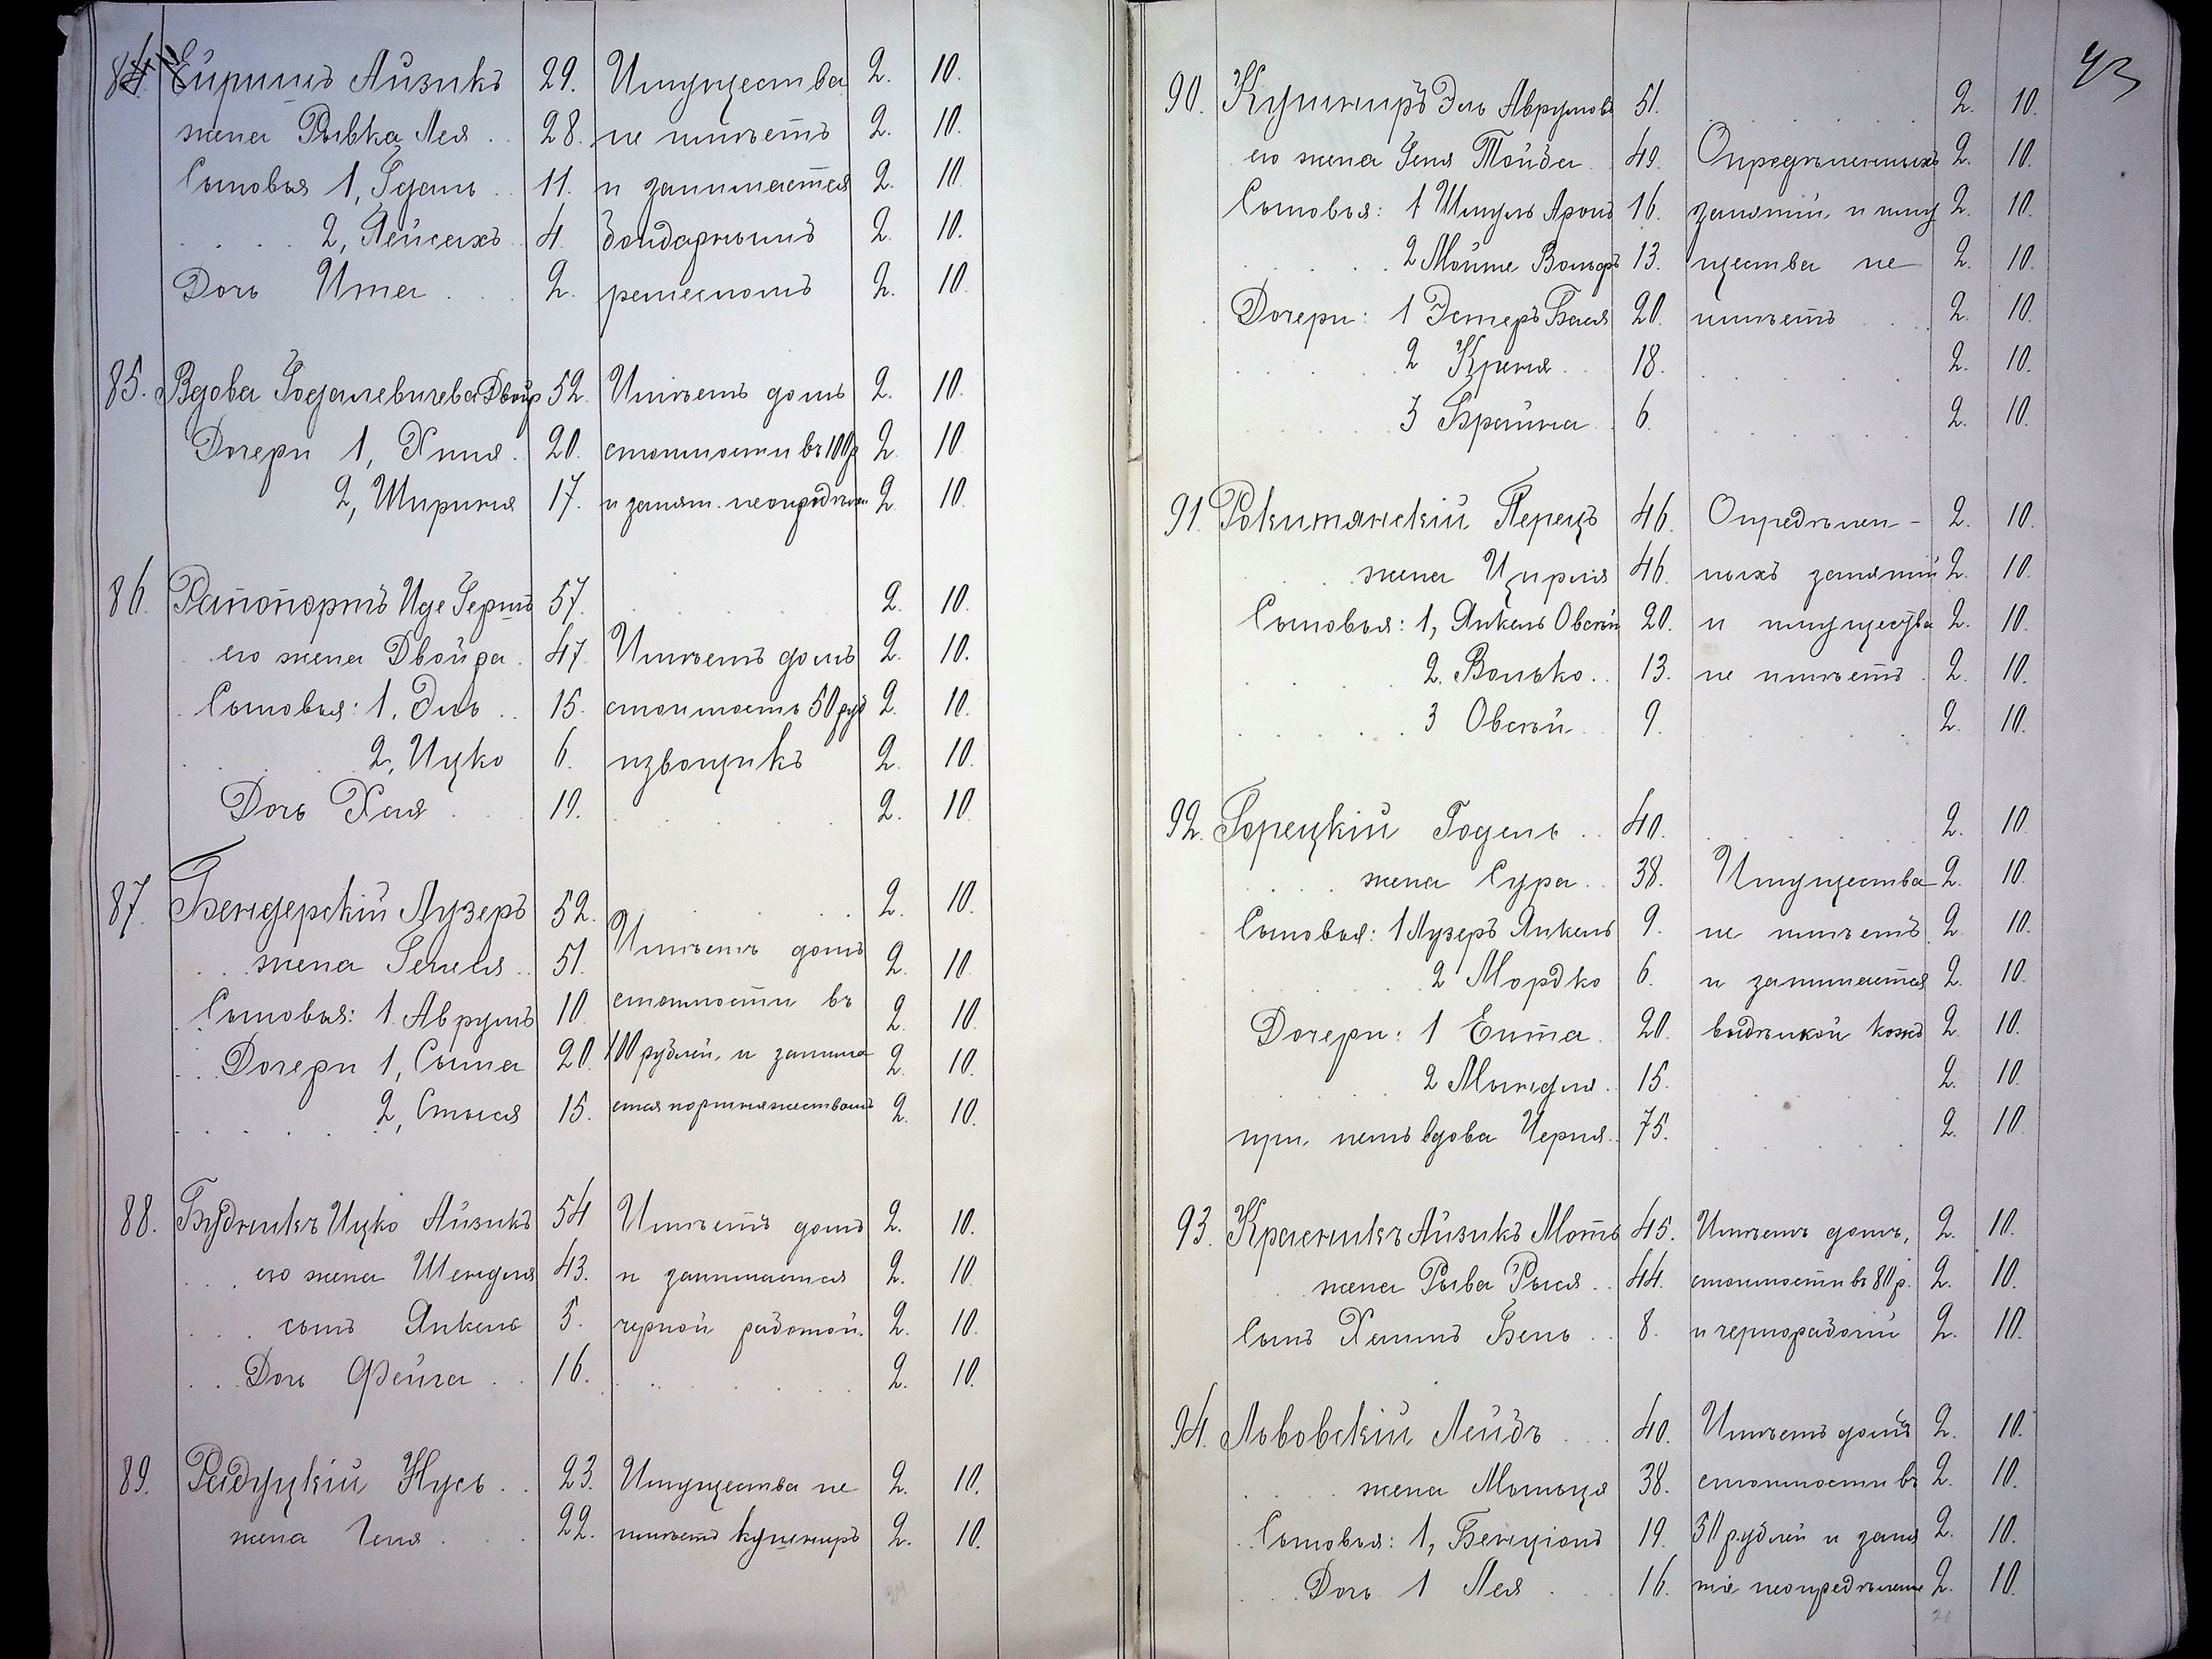 84. Ейришъ Айзикъ 29. Имущества 2. 10.
жена Рывка Лея 28. не имѣетъ 2. 10.
Сыновья 1, Гдаль 11. и занимается 2. 10.
2, Лейсахъ 4. бондарнымъ 2. 10.
Дочь Ита 2. ремесломъ 2. 10.
85. Вдова Годалевичева Двойр 52. Имѣетъ домъ 2. 10.
Дочери 1, Хина 20. стоимости въ 100 р 2. 10.
2, Шириня 17. и занят. неопредѣлен 2. 10.
86. Рапопортъ Иде Гершъ 57. 2. 10.
его жена Двойра 47. Имѣетъ домъ 2. 10.
Сыновья: 1. Эль 15. стоимость 50 руб 2. 10.
2, Ицко 6. извощикъ 2. 10.
Дочь Хая 19. 2. 10.
87. Бендерскій Лузеръ 52. 2. 10.
жена Генеся 51. Имѣетъ домъ 2. 10.
Сыновья: 1. Аврумъ 10. стоимости въ 2. 10.
Дочери 1, Сыма 20. 100 рублей, и занима 2. 10.
2, Стыся 15. ется портняжествомъ 2. 10.
88. Будникъ Ицко Айзикъ 54. Имѣетъ домъ 2. 10.
его жена Шендля 43. и занимается 2. 10.
сынъ Янкель 5. черной работой. 2. 10.
Дочь Фейга 16. 2. 10.
89. Радуцкій Нусь 23. Имущества не 2. 10.
жена Геня 22. имѣетъ кушниръ 2. 10.
43
90. Кушниръ Эль Аврумовъ 51. 2. 10.
его жена Геня Тойба 49. Опредѣленныхъ 2. 10.
Сыновья: 1 Шмуль Аронъ 16. занятій и иму 2. 10.
2 Мойше Вольфъ 13. щества не 2. 10.
Дочери: 1 Эстеръ Бася 20. имѣетъ 2. 10.
2 Креня 18. 2. 10.
3 Брайна 6. 2. 10.
91. Рокитянскій Перецъ 46. Опредѣлен- 2. 10.
жена Цирля 46. ныхъ занятій 2. 10.
Сыновья: 1, Янкель Овсѣй 20. и имущества 2. 10.
2. Волько 13. не имѣетъ 2. 10.
3 Овсѣй 9. 2. 10.
92. Горецкій Годель 40. 2. 10.
жена Сура 38. Имущества 2. 10.
Сыновья: 1 Лузеръ Янкель 9. не имѣетъ 2. 10.
2 Мордко 6. и занимается 2. 10.
Дочери: 1 Ента 20. выдѣлкой кожъ 2. 10.
2 Мындля 15. 2. 10.
при немъ вдова Черня 75. 2. 10.
93. Красникъ Айзикъ Мотъ 45. Имѣетъ домъ, 2. 10.
жена Рыва Рыся 44. стоимости въ 80 р. 2. 10.
Сынъ Хаимъ Бень 8. и чернорабочій 2. 10.
94. Львовскій Лейбъ 40. Имѣетъ домъ 2. 10.
жена Мотьця 38. стоимости въ 2. 10.
Сыновья: 1, Бенціонъ 19. 50 рублей и заня 2. 10.
Дочь 1 Лея 16. тіе неопредѣленн 2. 10.